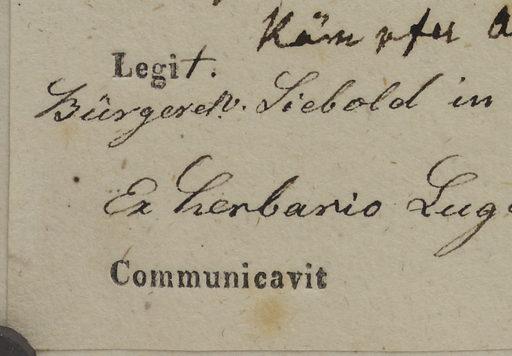 Kämpfer
Legit.
Bürger et v. Siebold in
Ex herbario Lug
Communicavit